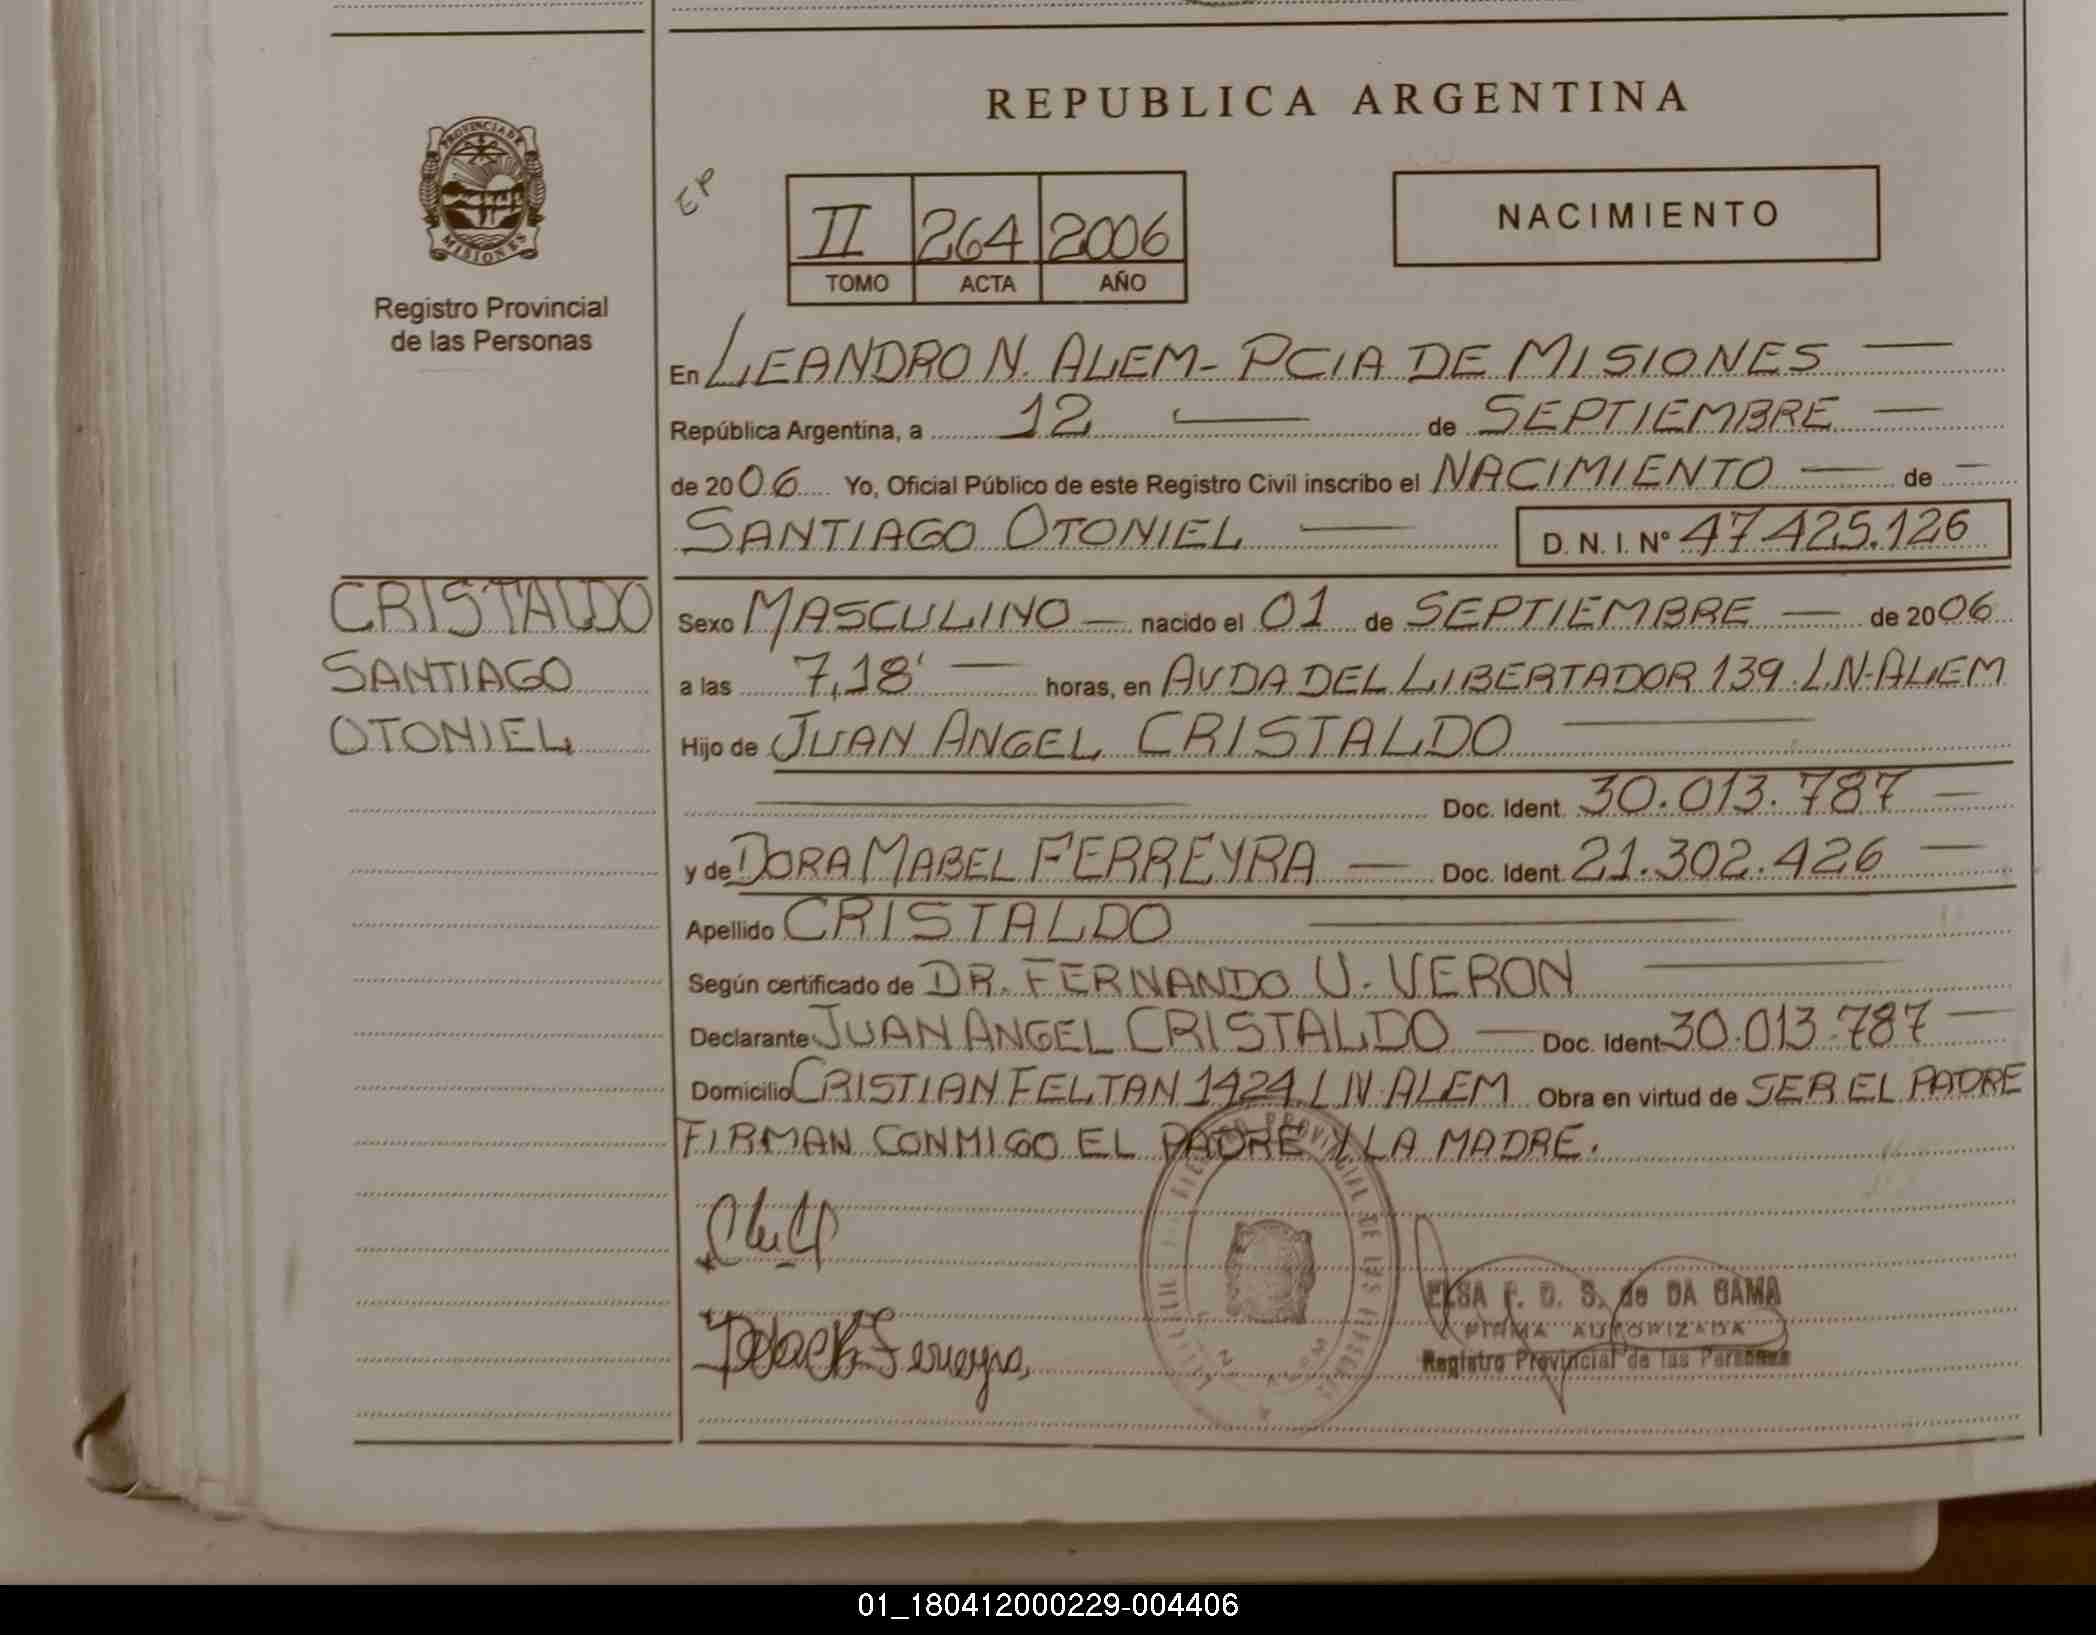 REPUBLICA ARGENTINA
PROVINCIA DE
MISIONES
Registro Provincial
de las Personas
EP
II 264 2006
TOMO ACTA AÑO
NACIMIENTO
En LEANDRO N. ALEM - PCIA DE MISIONES
República Argentina, a 12 de SEPTIEMBRE
de 2006 Yo, Oficial Público de este Registro Civil inscribo el NACIMIENTO de
SANTIAGO OTONIEL D. N. I. Nº 47.425.126
CRISTALDO
SANTIAGO
OTONIEL
Sexo MASCULINO nacido el 01 de SEPTIEMBRE de 2006
a las 7,18' horas, en AVDA DEL LIBERTADOR 139. L.N.ALEM
Hijo de JUAN ANGEL CRISTALDO
Doc. Ident. 30.013.787
y de DORA MABEL FERREYRA Doc. Ident. 21.302.426
Apellido CRISTALDO
Según certificado de DR. FERNANDO U. VERON
Declarante JUAN ANGEL CRISTALDO Doc. Ident 30.013.787
Domicilio CRISTIAN FELTAN 1424 L N.ALEM Obra en virtud de SER EL PADRE
FIRMAN CONMIGO EL PADRE Y LA MADRE.
PROVINCIAL DE LAS
Ferreyra
ELSA F. D. S. de DA GAMA
FIRMA AUTORIZADA
Registro Provincial de las Personas
01_180412000229-004406